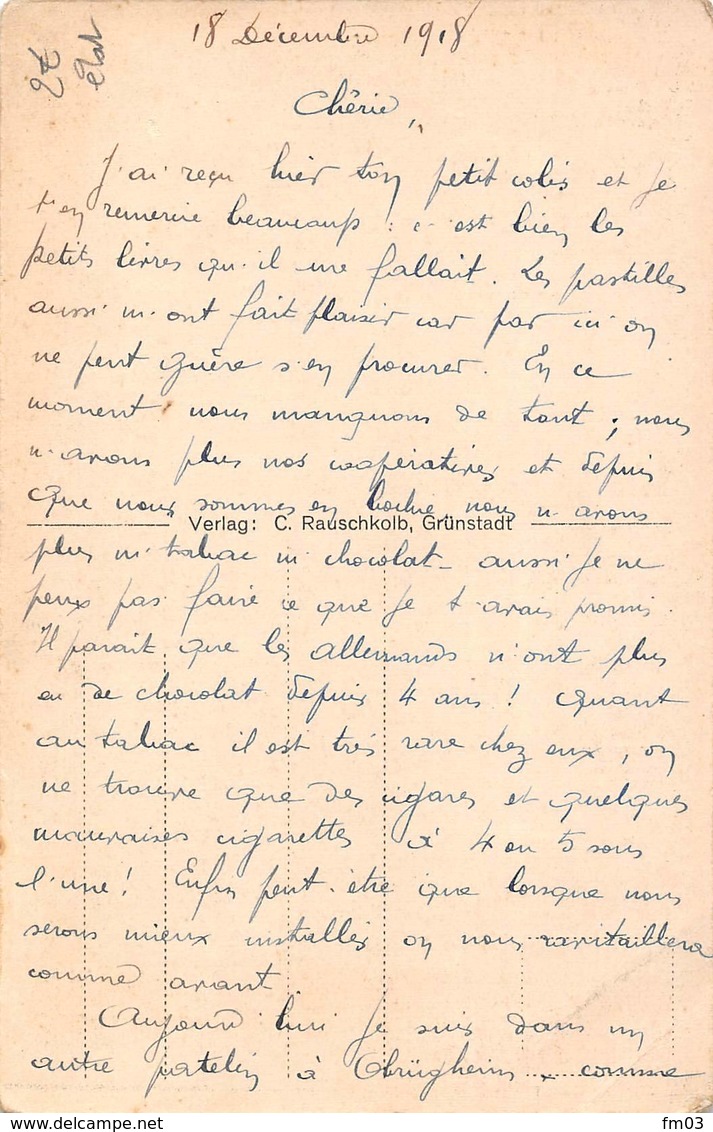 18 Décembre 1918
2€
état
Chérie,
J'ai reçu hier ton petit colis et je
t'en remercie beaucoup : c'est bien les
petits livres qu'il me fallait. Les pastilles
aussi m'ont fait plaisir car par ici on
ne peut guère s'en procurer. En ce
moment nous manquons de tout ; nous
n'avons plus nos coopératives et depuis
que nous sommes en bochie nous n'avons
Verlag: C. Rauschkolb, Grünstadt
plus ni tabac ni chocolat - aussi je ne
peux pas faire ce que je t'avais promis.
Il parait que les allemands n'ont plus
eu de chocolat depuis 4 ans ! Quant
au tabac il est très rare chez eux, on
ne trouve que des cigares et quelques
mauvaises cigarettes à 4 ou 5 sous
l'une ! Enfin peut-être que lorsque nous
serons mieux installés on nous ravitaillera
comme avant.
Aujourd'hui je suis dans un
autre patelin à Obrigheim - comme
fm03